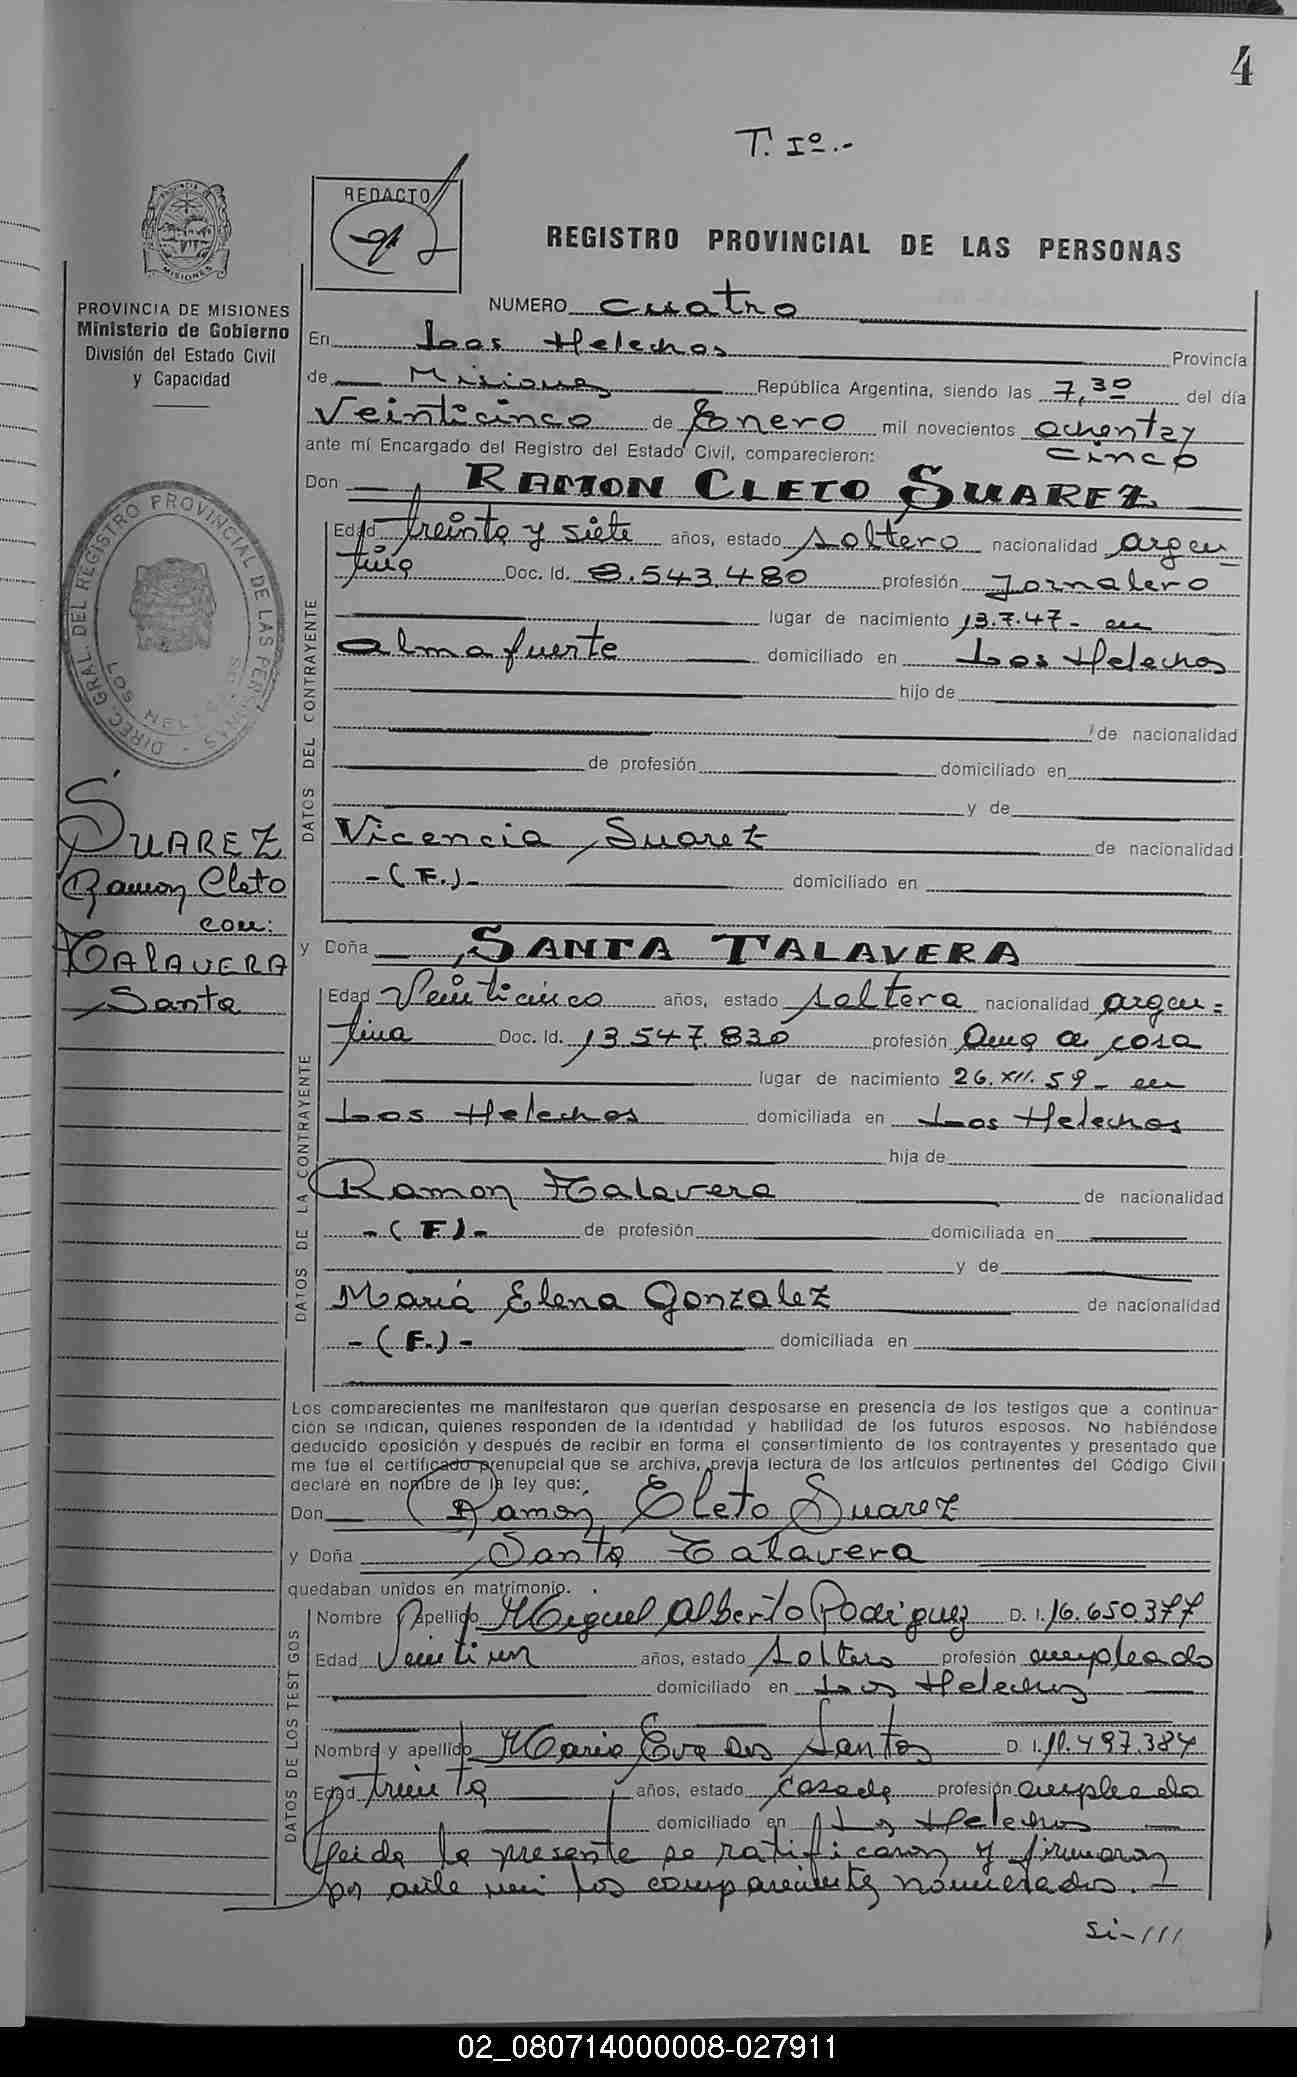 4
T. Iº.-
REDACTO
REGISTRO PROVINCIAL DE LAS PERSONAS
PROVINCIA DE MISIONES
Ministerio de Gobierno
División del Estado Civil
y Capacidad
DIREC. GRAL. DEL REGISTRO PROVINCIAL DE LAS PERSONAS
LOS HELECHOS
SUAREZ
Ramon Cleto
con:
TALAVERA
Santa
NUMERO cuatro
En Los Helechos Provincia
de Misiones República Argentina, siendo las 7,30 del día
Veinticinco de Enero mil novecientos ochentay
cinco
ante mí Encargado del Registro del Estado Civil, comparecieron:
Don RAMON CLETO SUAREZ
DATOS DEL CONTRAYENTE
Edad treinta y siete años, estado soltero nacionalidad argen-
tina Doc. Id. 8.543.480 profesión Jornalero
lugar de nacimiento 13.7.47- en
Almafuerte domiciliado en Los Helechos
hijo de
de nacionalidad
de profesión domiciliado en
y de
Vicencia Suarez de nacionalidad
-(F.)- domiciliado en
y Doña SANTA TALAVERA
DATOS DE LA CONTRAYENTE
Edad Veinticinco años, estado soltera nacionalidad argen-
tina Doc. Id. 13.547.830 profesión Ama de casa
lugar de nacimiento 26.XII.59- en
Los Helechos domiciliada en Los Helechos
hija de
Ramon Talavera de nacionalidad
-(F)- de profesión domiciliada en
y de
María Elena Gonzalez de nacionalidad
-(F.)- domiciliada en
Los comparecientes me manifestaron que querían desposarse en presencia de los testigos que a continua-
ción se indican, quienes responden de la identidad y habilidad de los futuros esposos. No habiéndose
deducido oposición y después de recibir en forma el consentimiento de los contrayentes y presentado que
me fue el certificado prenupcial que se archiva, previa lectura de los artículos pertinentes del Código Civil
declaré en nombre de la ley que:
Don Ramon Cleto Suarez
y Doña Santa Talavera
quedaban unidos en matrimonio.
DATOS DE LOS TESTIGOS
Nombre y apellido Miguel Alberto Rodriguez D. I. 16.650377
Edad Veintiun años, estado soltero profesión empleado
domiciliado en Los Helechos
Nombre y apellido Maria Eva Dos Santos D. I. 11.497.384
Edad treinta años, estado casada profesión empleada
domiciliado en Los Helechos
Leida la presente se ratificaron y firmaron
por ante mi los comparecientes nombrados.-
Si-///
02_080714000008-027911